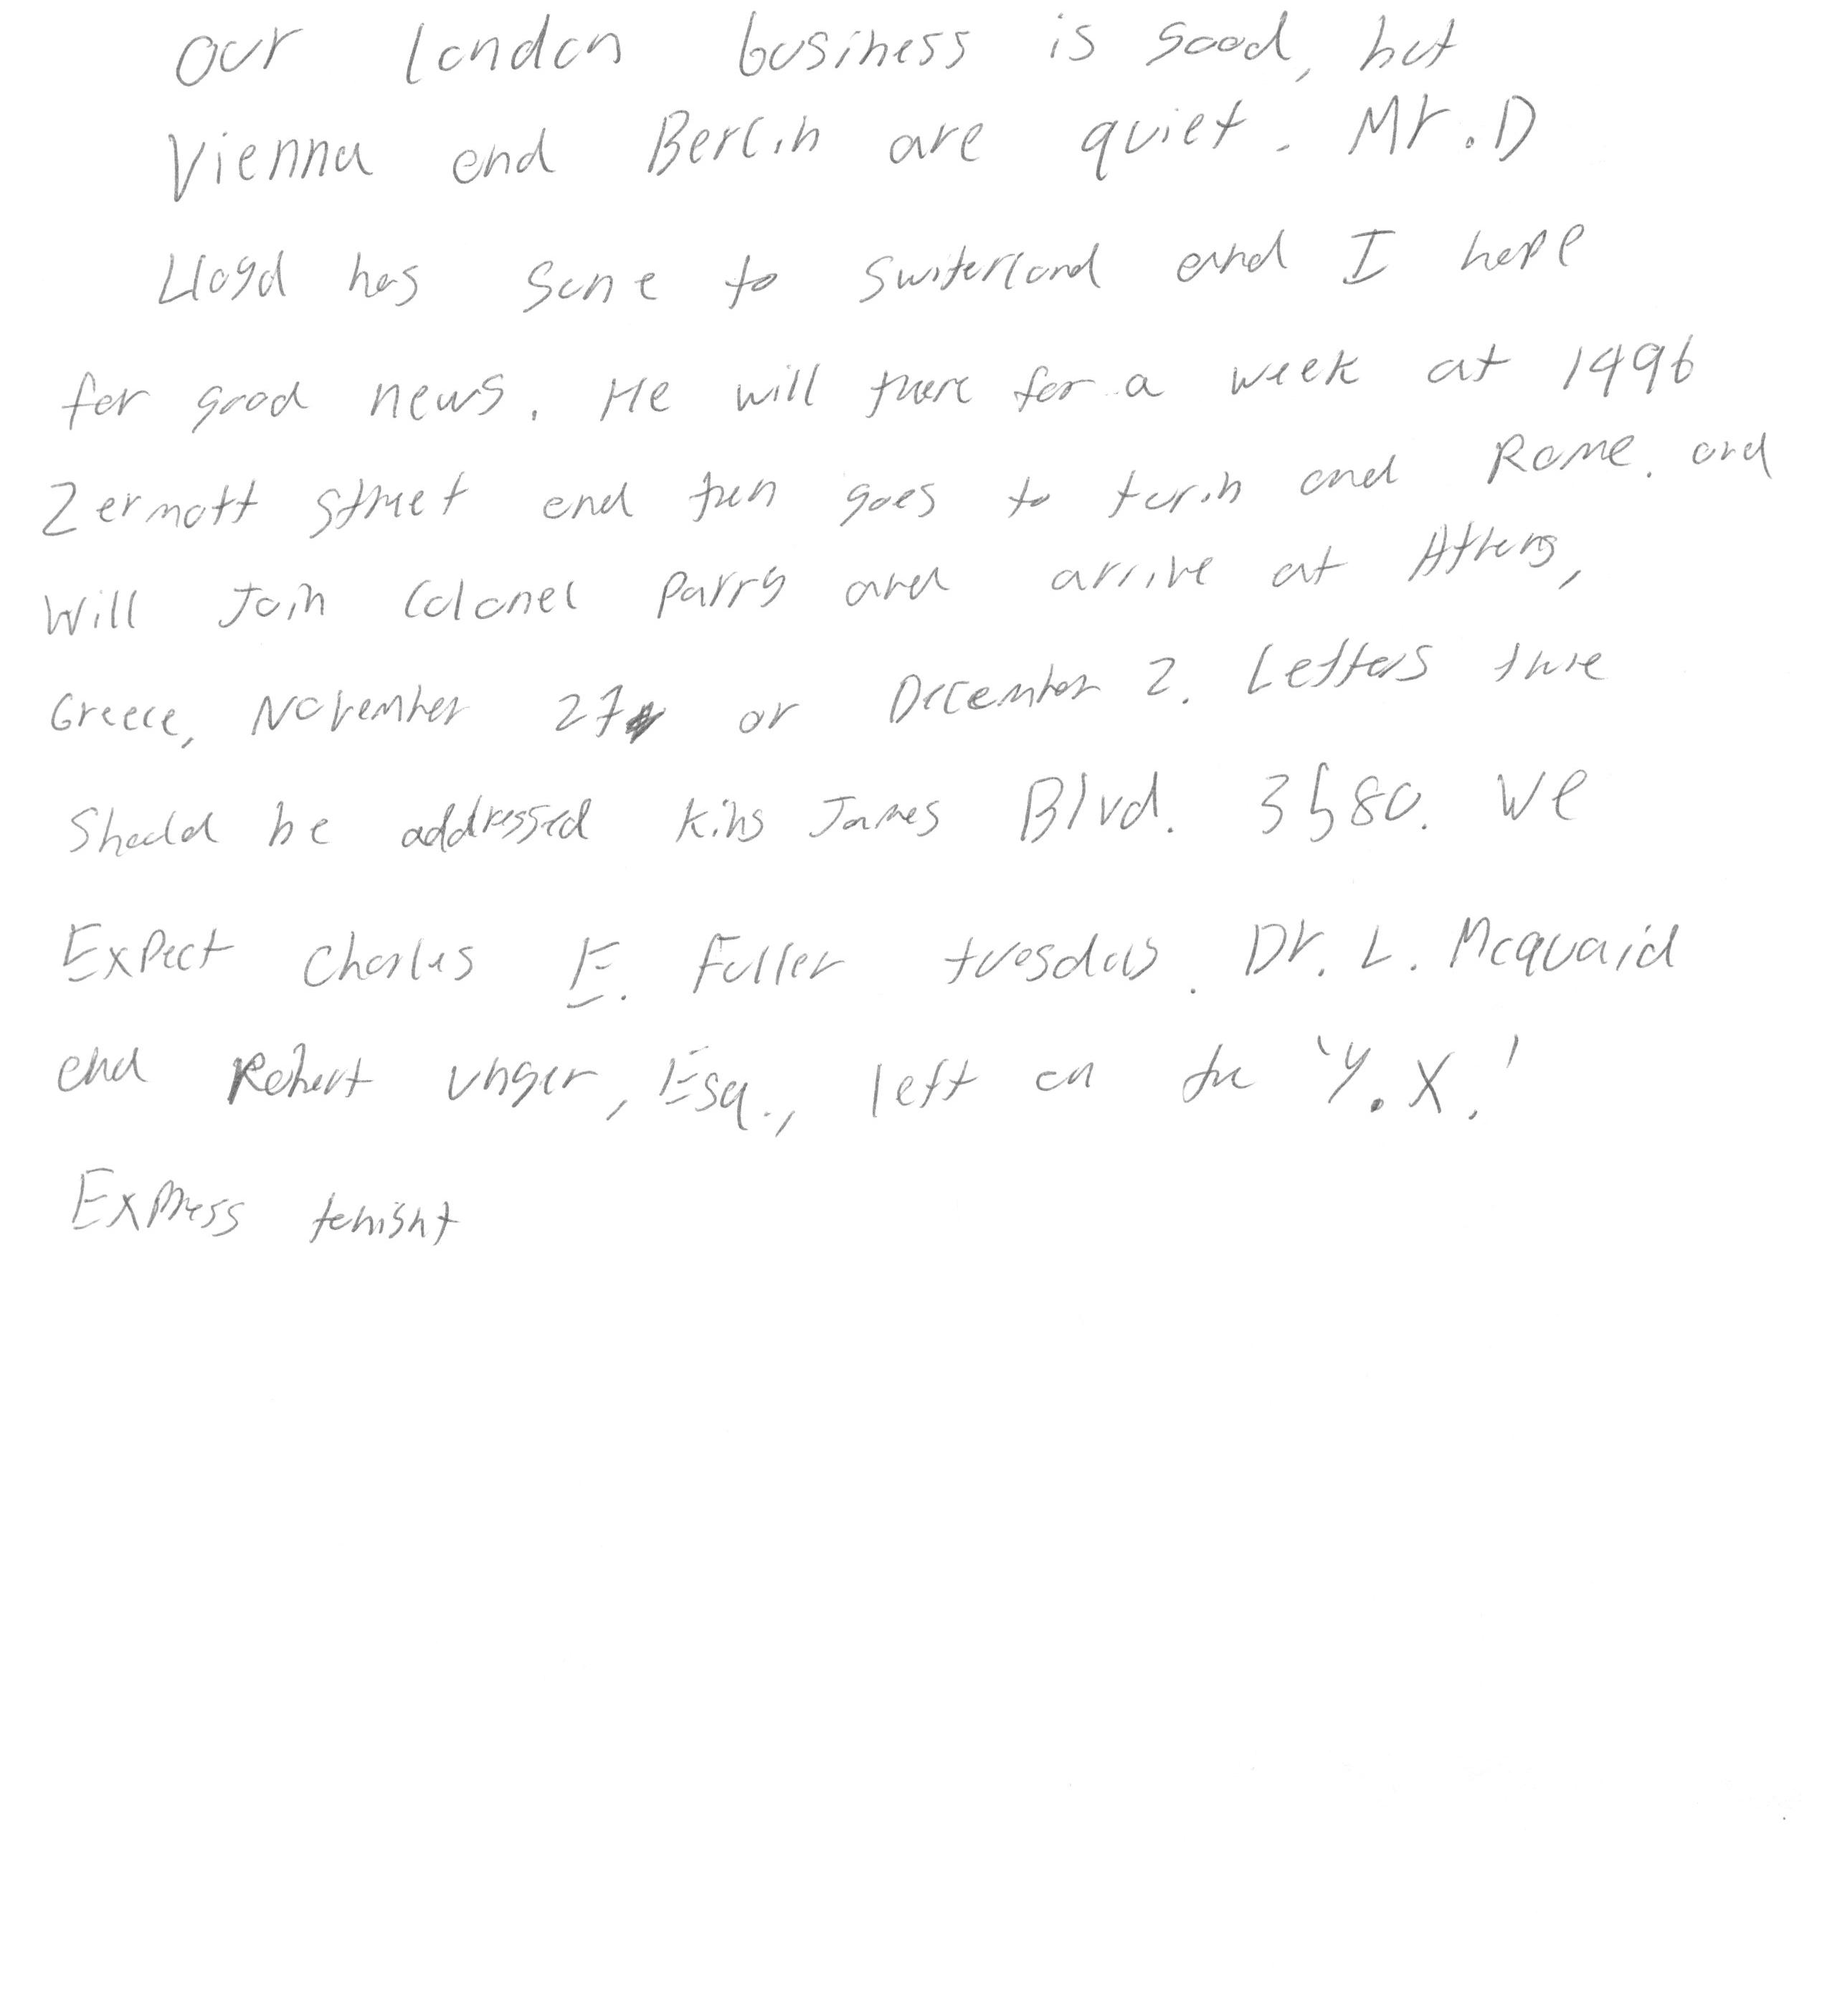 Our London business is good, but
Vienna and Berlin are quiet. Mr. D
Lloyd has gone to Switerland and I hope
for good news. He will there for a week at 1496
Zermott street and then goes to turin and Rome. and
Will Join Colonel Parry and arrive at Athens,
Greece, November 27 or December 2. Letters there
Should be addressed King James Blvd. 3580. We
Expect Charles E. Fuller tuesday. Dr. L. Mcquaid
and Robert Unger, Esq., left on the 'Y.X.'
Express tonight